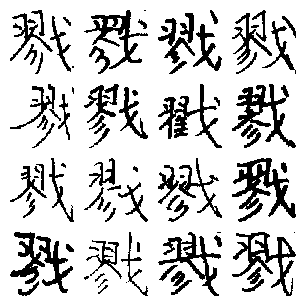 戮戮戮戮
戮戮戳戮
戮戮戮戮
戮戮戮戮